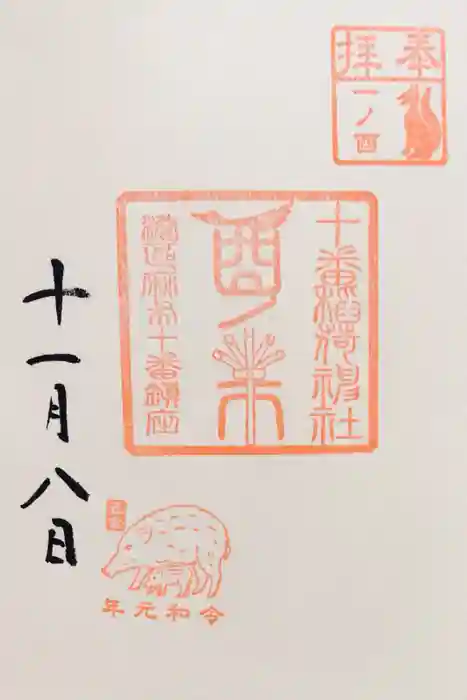 奉拝
一ノ酉
十番稲荷神社
酉ノ市
港區麻布十番鎮座
十一月八日
令和元年